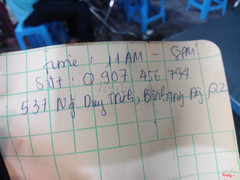 time : 11 AM - 8PM
Sđt : 0.907 456.794
537 Ng Duy Trinh, Bình Trưng Đg, Q2